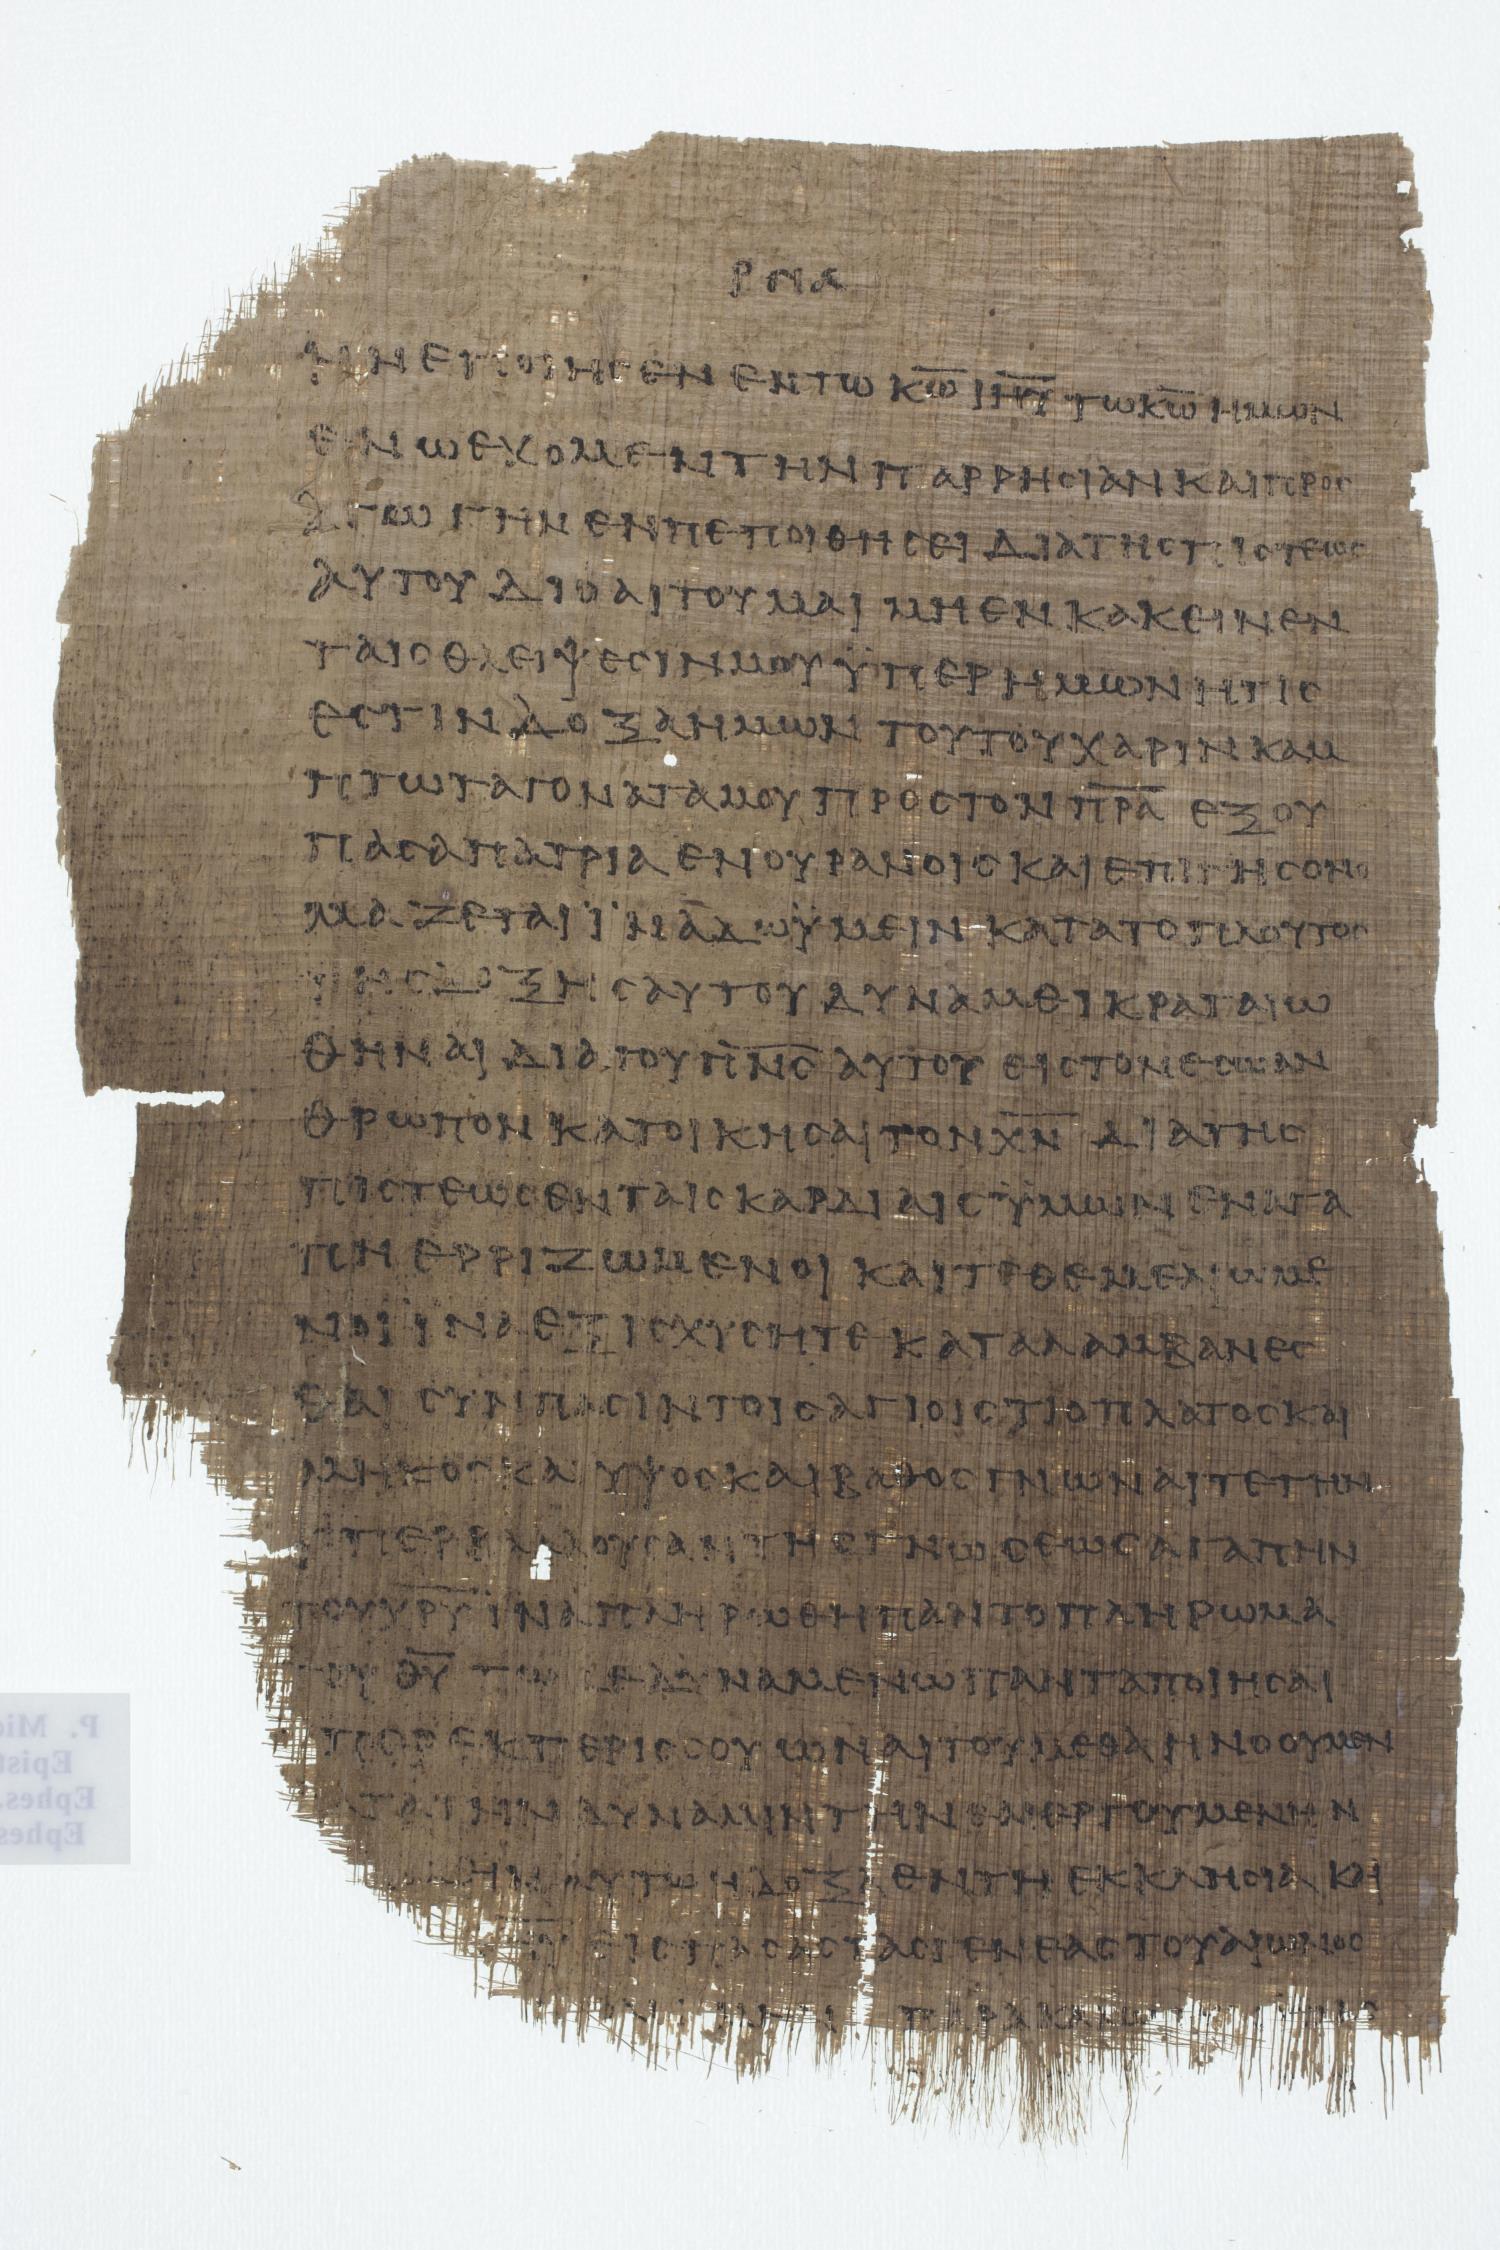 ΡΝΑ
ΗΝ ΕΠΟΙΗΣΕΝ ΕΝ ΤΩ Κ̅Ω̅ Ι̅Η̅Υ̅ ΤΩ Κ̅Ω̅ ΗΜΩΝ
ΕΝ Ω ΕΧΟΜΕΝ ΤΗΝ ΠΑΡΡΗΣΙΑΝ ΚΑΙ ΠΡΟΣ
ΑΓΩΓΗΝ ΕΝ ΠΕΠΟΙΘΗΣΕΙ ΔΙΑ ΤΗΣ ΠΙΣΤΕΩΣ
ΑΥΤΟΥ ΔΙΟ ΑΙΤΟΥΜΑΙ ΜΗ ΕΝΚΑΚΕΙΝ ΕΝ
ΤΑΙΣ ΘΛΕΙΨΕΣΙΝ ΜΟΥ ΫΠΕΡ ΗΜΩΝ ΗΤΙΣ
ΕΣΤΙΝ ΔΟΞΑ ΗΜΩΝ ΤΟΥΤΟΥ ΧΑΡΙΝ ΚΑΜ
ΠΤΩ ΤΑ ΓΟΝΑΤΑ ΜΟΥ ΠΡΟΣ ΤΟΝ Π̅Ρ̅Α̅ ΕΞ ΟΥ
ΠΑΣΑ ΠΑΤΡΙΑ ΕΝ ΟΥΡΑΝΟΙΣ ΚΑΙ ΕΠΙ ΓΗΣ ΟΝΟ
ΜΑΖΕΤΑΙ ΪΝΑ ΔΩ ΫΜΕΙΝ ΚΑΤΑ ΤΟ ΠΛΟΥΤΟΣ
ΤΗΣ ΔΟΞΗΣ ΑΥΤΟΥ ΔΥΝΑΜΕΙ ΚΡΑΤΑΙΩ
ΘΗΝΑΙ ΔΙΑ ΤΟΥ Π̅Ν̅Σ̅ ΑΥΤΟΥ ΕΙΣ ΤΟΝ ΕΣΩ ΑΝ
ΘΡΩΠΟΝ ΚΑΤΟΙΚΗΣΑΙ ΤΟΝ Χ̅Ν̅ ΔΙΑ ΤΗΣ
ΠΙΣΤΕΩΣ ΕΝ ΤΑΙΣ ΚΑΡΔΙΑΙΣ ΫΜΩΝ ΕΝ ΑΓΑ
ΠΗ ΕΡΡΙΖΩΜΕΝΟΙ ΚΑΙ ΤΕΘΕΜΕΛΙΩΜΕ
ΝΟΙ ΪΝΑ ΕΞΙΣΧΥΣΗΤΕ ΚΑΤΑΛΑΜΒΑΝΕΣ
ΘΑΙ ΣΥΝ ΠΑΣΙΝ ΤΟΙΣ ΑΓΙΟΙΣ ΤΙ ΤΟ ΠΛΑΤΟΣ ΚΑΙ
ΜΗΚΟΣ ΚΑΙ ΥΨΟΣ ΚΑΙ ΒΑΘΟΣ ΓΝΩΝΑΙ ΤΕ ΤΗΝ
ΥΠΕΡΒΑΛΛΟΥΣΑΝ ΤΗΣ ΓΝΩΣΕΩΣ ΑΓΑΠΗΝ
ΤΟΥ Χ̅Ρ̅Υ̅ ΪΝΑ ΠΛΗΡΩΘΗ ΠΑΝ ΤΟ ΠΛΗΡΩΜΑ
ΤΟΥ Θ̅Υ̅ ΤΩ ΔΕ ΔΥΝΑΜΕΝΩ ΠΑΝΤΑ ΠΟΙΗΣΑΙ
ΥΠΕΡΕΚΠΕΡΙΣΣΟΥ ΩΝ ΑΙΤΟΥΜΕΘΑ Η ΝΟΟΥΜΕΝ
ΚΑΤΑ ΤΗΝ ΔΥΝΑΜΙΝ ΤΗΝ ΕΝΕΡΓΟΥΜΕΝΗΝ
ΗΜΙΝ ΑΥΤΩ Η ΔΟΞΑ ΕΝ ΤΗ ΕΚΚΛΗΣΙΑ ΚΑΙ
ΕΙΣ ΠΑΣΑΣ ΤΑΣ ΓΕΝΕΑΣ ΤΟΥ ΑΙΩΝΟΣ
ΠΑΡΑΚΑΛΩ
P. Mic
Epist
Ephes.
Ephes